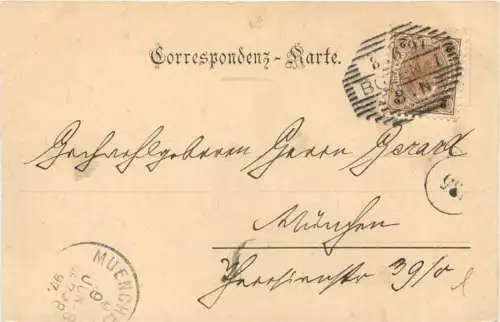 Correspondenz-Karte.
BOZEN
Hochwohlgeboren Herrn Gerard
München
Theresienstr 39/0
MUENCHE
97.